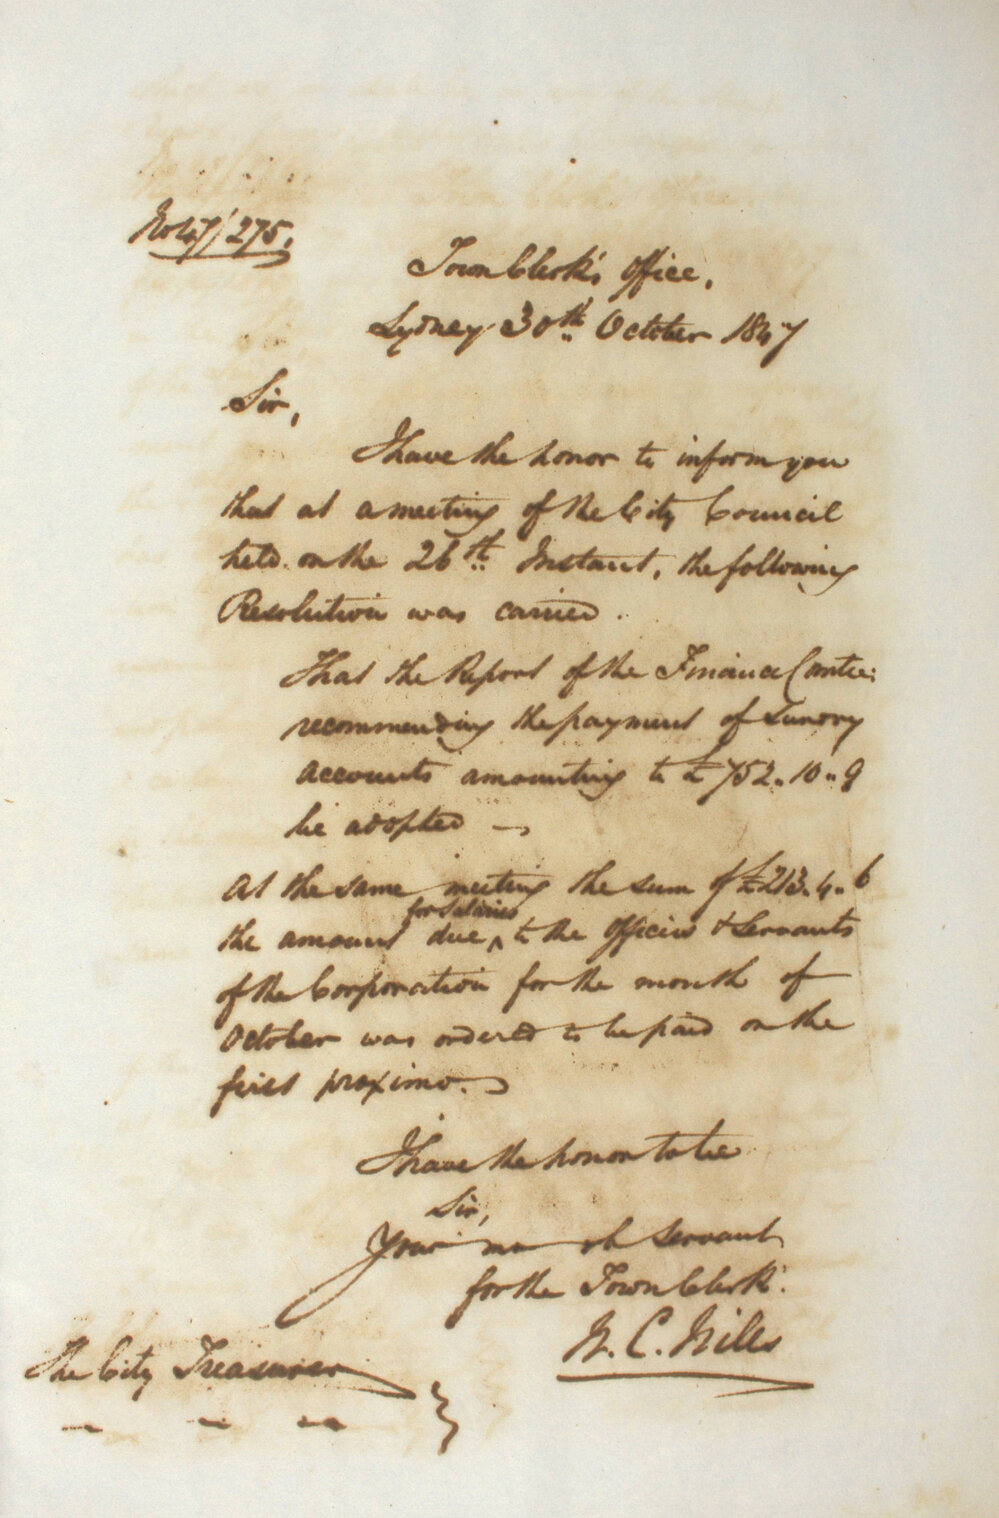 No 47/275.
Town Clerk's Office,
Sydney 30th October 1847
Sir,
I have the honor to inform you
that at a meeting of the City Council
held on the 26th Instant, the following
Resolution was carried.
That the Report of the Finance Comtee:
recommending the payment of Sundry
accounts amounting to £752.10.9
be adopted —
At the same meeting the sum of £213.4.6
for Salaries
the amount due ^ to the Officers & Servants
of the Corporation for the month of
October was ordered to be paid on the
first proximo.
I have the honor to be
Sir,
Your mo ob Servant
for the Town Clerk.
The City Treasurer